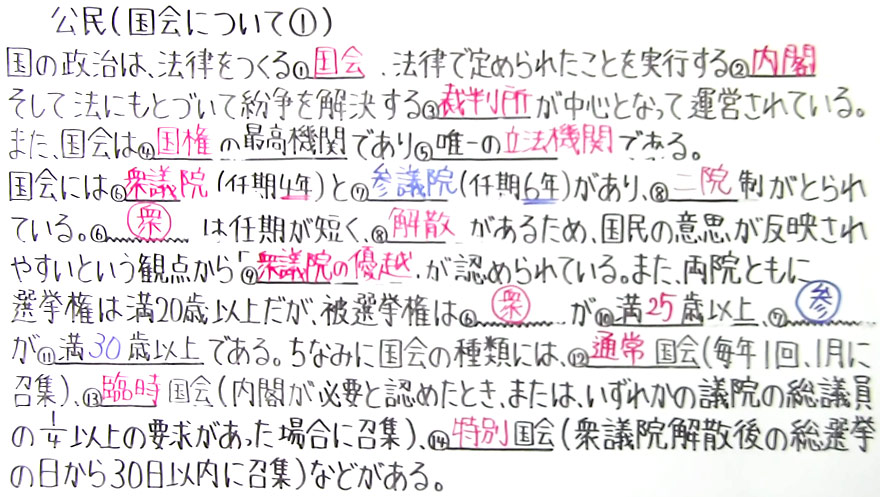 公民(国会について①)
国の政治は、法律をつくる①国会、法律で定められたことを実行する②内閣
そして法にもとづいて紛争を解決する③裁判所が中心となって運営されている。
また、国会は④国権の最高機関であり⑤唯一の立法機関である。
国会には⑥衆議院(任期4年)と⑦参議院(任期6年)があり、⑧二院制がとられ
ている。⑥衆は任期が短く、⑧解散があるため、国民の意思が反映され
やすいという観点から「⑨衆議院の優越」が認められている。また、両院ともに
選挙権は満20歳以上だが、被選挙権は⑥衆が⑩満25歳以上、⑦参
が⑪満30歳以上である。ちなみに国会の種類には、⑫通常国会(毎年1回、1月に
召集)、⑬臨時国会(内閣が必要と認めたとき、または、いずれかの議院の総議員
の1/4以上の要求があった場合に召集)、⑭特別国会(衆議院解散後の総選挙
の日から30日以内に召集)などがある。